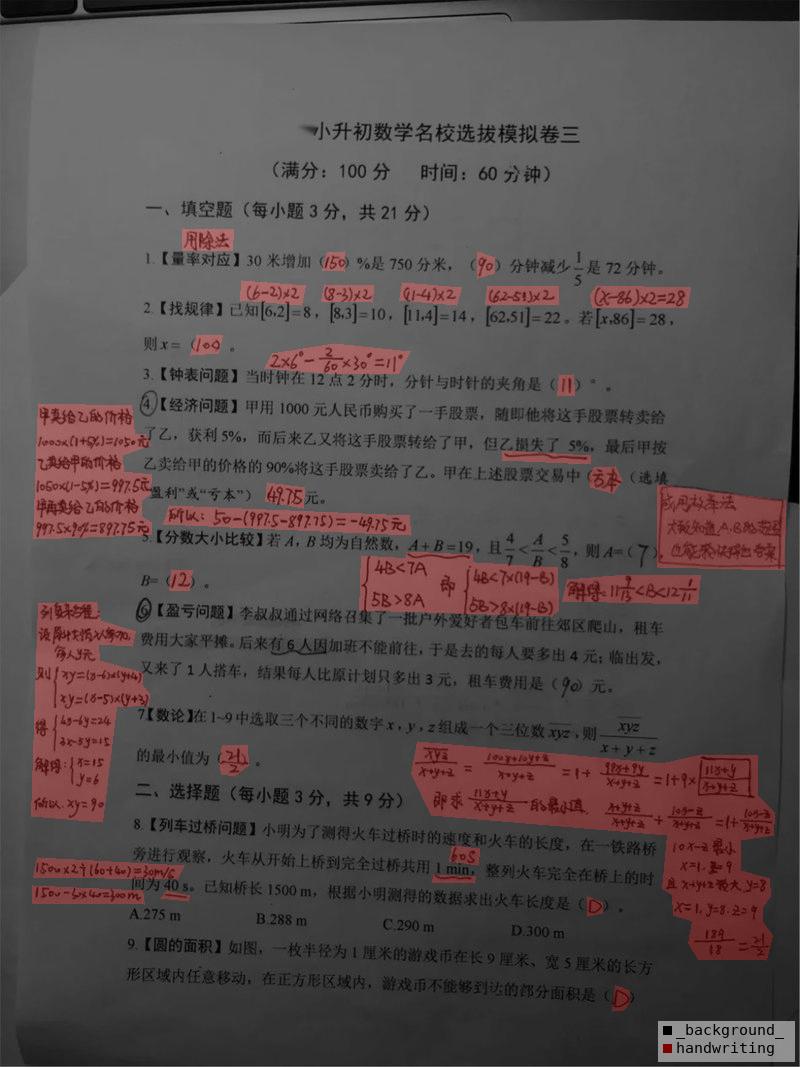 小升初数学名校选拔模拟卷三
(满分：100 分 时间：60 分钟)
一、填空题（每小题 3 分，共 21 分）
用除法
1.【量率对应】30 米增加（150）%是 750 分米，（90）分钟减少 1/5 是 72 分钟。
(6-2)×2 (8-3)×2 (11-4)×2 (62-51)×2 (x-86)×2=28
2.【找规律】已知[6,2]=8，[8,3]=10，[11,4]=14，[62,51]=22。若[x,86]=28，
则 x =（100）。
2×6°-2/60×30°=11°
3.【钟表问题】当时钟在 12 点 2 分时，分针与时针的夹角是（11）°。
4.【经济问题】甲用 1000 元人民币购买了一手股票，随即他将这手股票转卖给
了乙，获利 5%，而后来乙又将这手股票转给了甲，但乙损失了 5%，最后甲按
乙卖给甲的价格的 90%将这手股票卖给了乙。甲在上述股票交易中（亏本）（选填
"盈利"或"亏本"）49.75 元。
甲卖给乙的价格
1000×(1+5%)=1050元
乙卖给甲的价格
1050×(1-5%)=997.5元
甲再卖给乙的价格
997.5×90%=897.75元
所以：50-(997.5-897.75)=-49.75元
应用放杀法
5.【分数大小比较】若 A，B 均为自然数，A+B=19，且 4/7 < A/B < 5/8，则 A=（7），
B=（12）。
{4B<7A 即 {4B<7×(19-B)
5B>8A 5B>8×(19-B)
解得：11 9/13<B<12 1/11
6.【盈亏问题】李叔叔通过网络召集了一批户外爱好者包车前往郊区爬山，租车
费用大家平摊。后来有 6 人因加班不能前往，于是去的每人要多出 4 元；临出发，
又来了 1 人搭车，结果每人比原计划只多出 3 元，租车费用是（90）元。
每人y元
则{xy=(x-6)×(y+4)
xy=(x-5)×(y+3)
得{4x-6y=24
3x-5y=15
解得：{x=15
y=6
所以：xy=90
7【数论】在 1~9 中选取三个不同的数字 x，y，z 组成一个三位数 xyz，则 xyz/(x+y+z)
的最小值为（21/2）。
xyz/(x+y+z) = (100x+10y+z)/(x+y+z) = 1+(99x+9y)/(x+y+z) = 1+9×(11x+y)/(x+y+z)
即求 (11x+y)/(x+y+z) 的最小值. (x+y+z)/(x+y+z)+(10x-z)/(x+y+z)=1+(10x-z)/(x+y+z)
10x-z 最小
x=1, z=9
且 x+y+z 最大 y=8
x=1, y=8, z=9
189/18=21/2
二、选择题（每小题 3 分，共 9 分）
8.【列车过桥问题】小明为了测得火车过桥时的速度和火车的长度，在一铁路桥
旁进行观察，火车从开始上桥到完全过桥共用 1 min，整列火车完全在桥上的时
60s
间为 40 s。已知桥长 1500 m，根据小明测得的数据求出火车长度是（D）。
1500×2÷(60+40)=30m/s
1500-30×40=300m
A.275 m B.288 m C.290 m D.300 m
9.【圆的面积】如图，一枚半径为 1 厘米的游戏币在长 9 厘米、宽 5 厘米的长方
形区域内任意移动，在正方形区域内，游戏币不能够到达的部分面积是（D）
_background_
handwriting